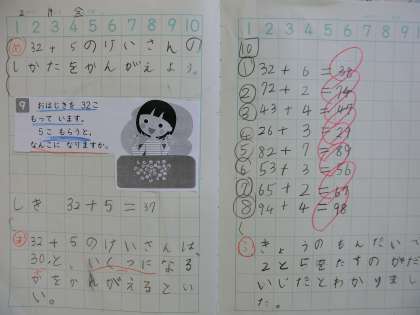 1 2 3 4 5 6 7 8 9 10
め 32+5のけいさんの
しかたをかんがえよう。
9 おはじきを 32こ
もって います。
5こ もらうと、
なんこに なりますか。
しき 32+5=37
ま 32+5のけいさんは、
30と、いくつになる
かをかんがえるとい
い。
1 2 3 4 5 6 7 8
10
① 32+6=38
② 72+2=74
③ 43+4=47
④ 26+3=29
⑤ 82+7=89
⑥ 53+3=56
⑦ 65+2=67
⑧ 94+4=98
きょうのもんだいで
2と5をたすのがだ
いじだとわかりまし
た。